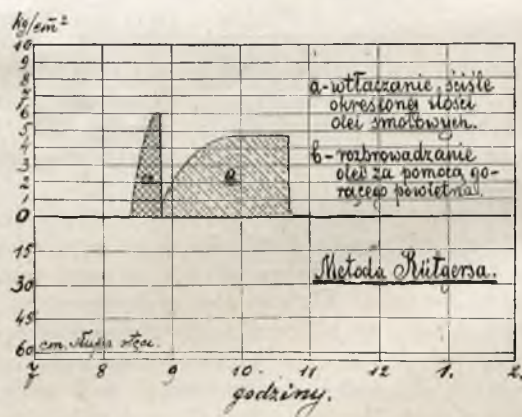 kg/cm²
10
9
8
7
6
5
4
3
2
1
0
15
30
45
60
a-wtłaczanie ściśle
określonej ilości
olei smołowych.
b-rozprowadzanie
olei za pomocą go-
rącego powietrza.
a
Metoda Rütgersa.
cm. słupa rtęci.
7 8 9 10. 11 12 1. 2.
godziny.